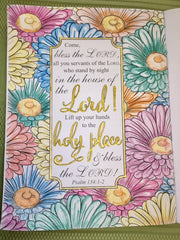 Come,
bless the LORD,
all you servants of the LORD,
who stand by night
in the house of
the
Lord!
Lift up your hands
to the
holy place
& bless
the LORD!
Psalm 134:1-2